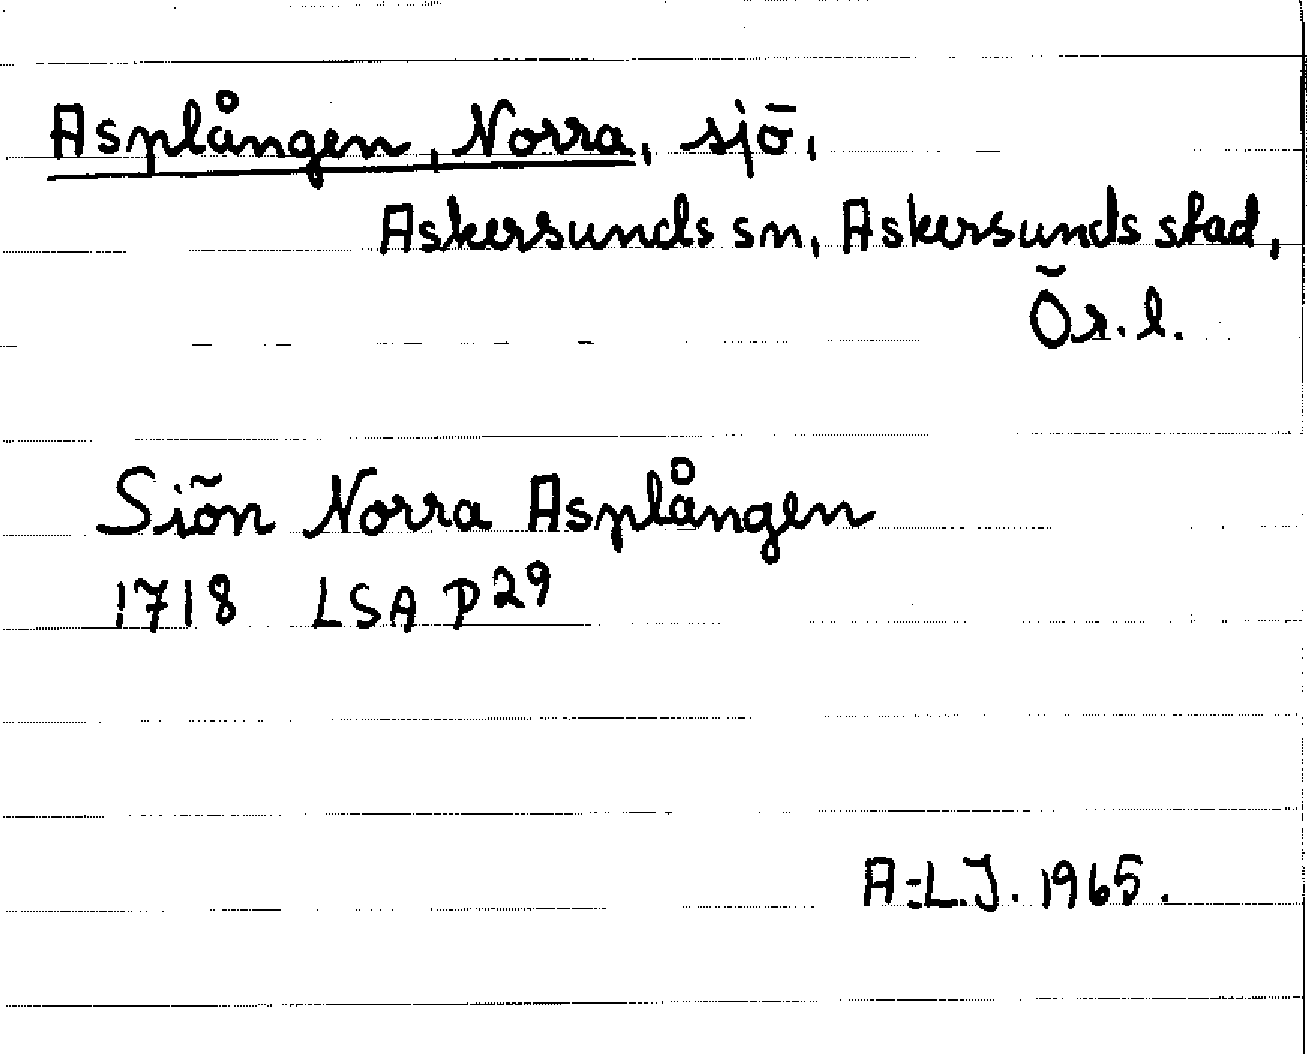 Asplången, Norra, sjö,
Askersunds sn, Askersunds stad,
Ör. l.
Siön Norra Asplången
1718 LSA P 29
A-L.J. 1965.